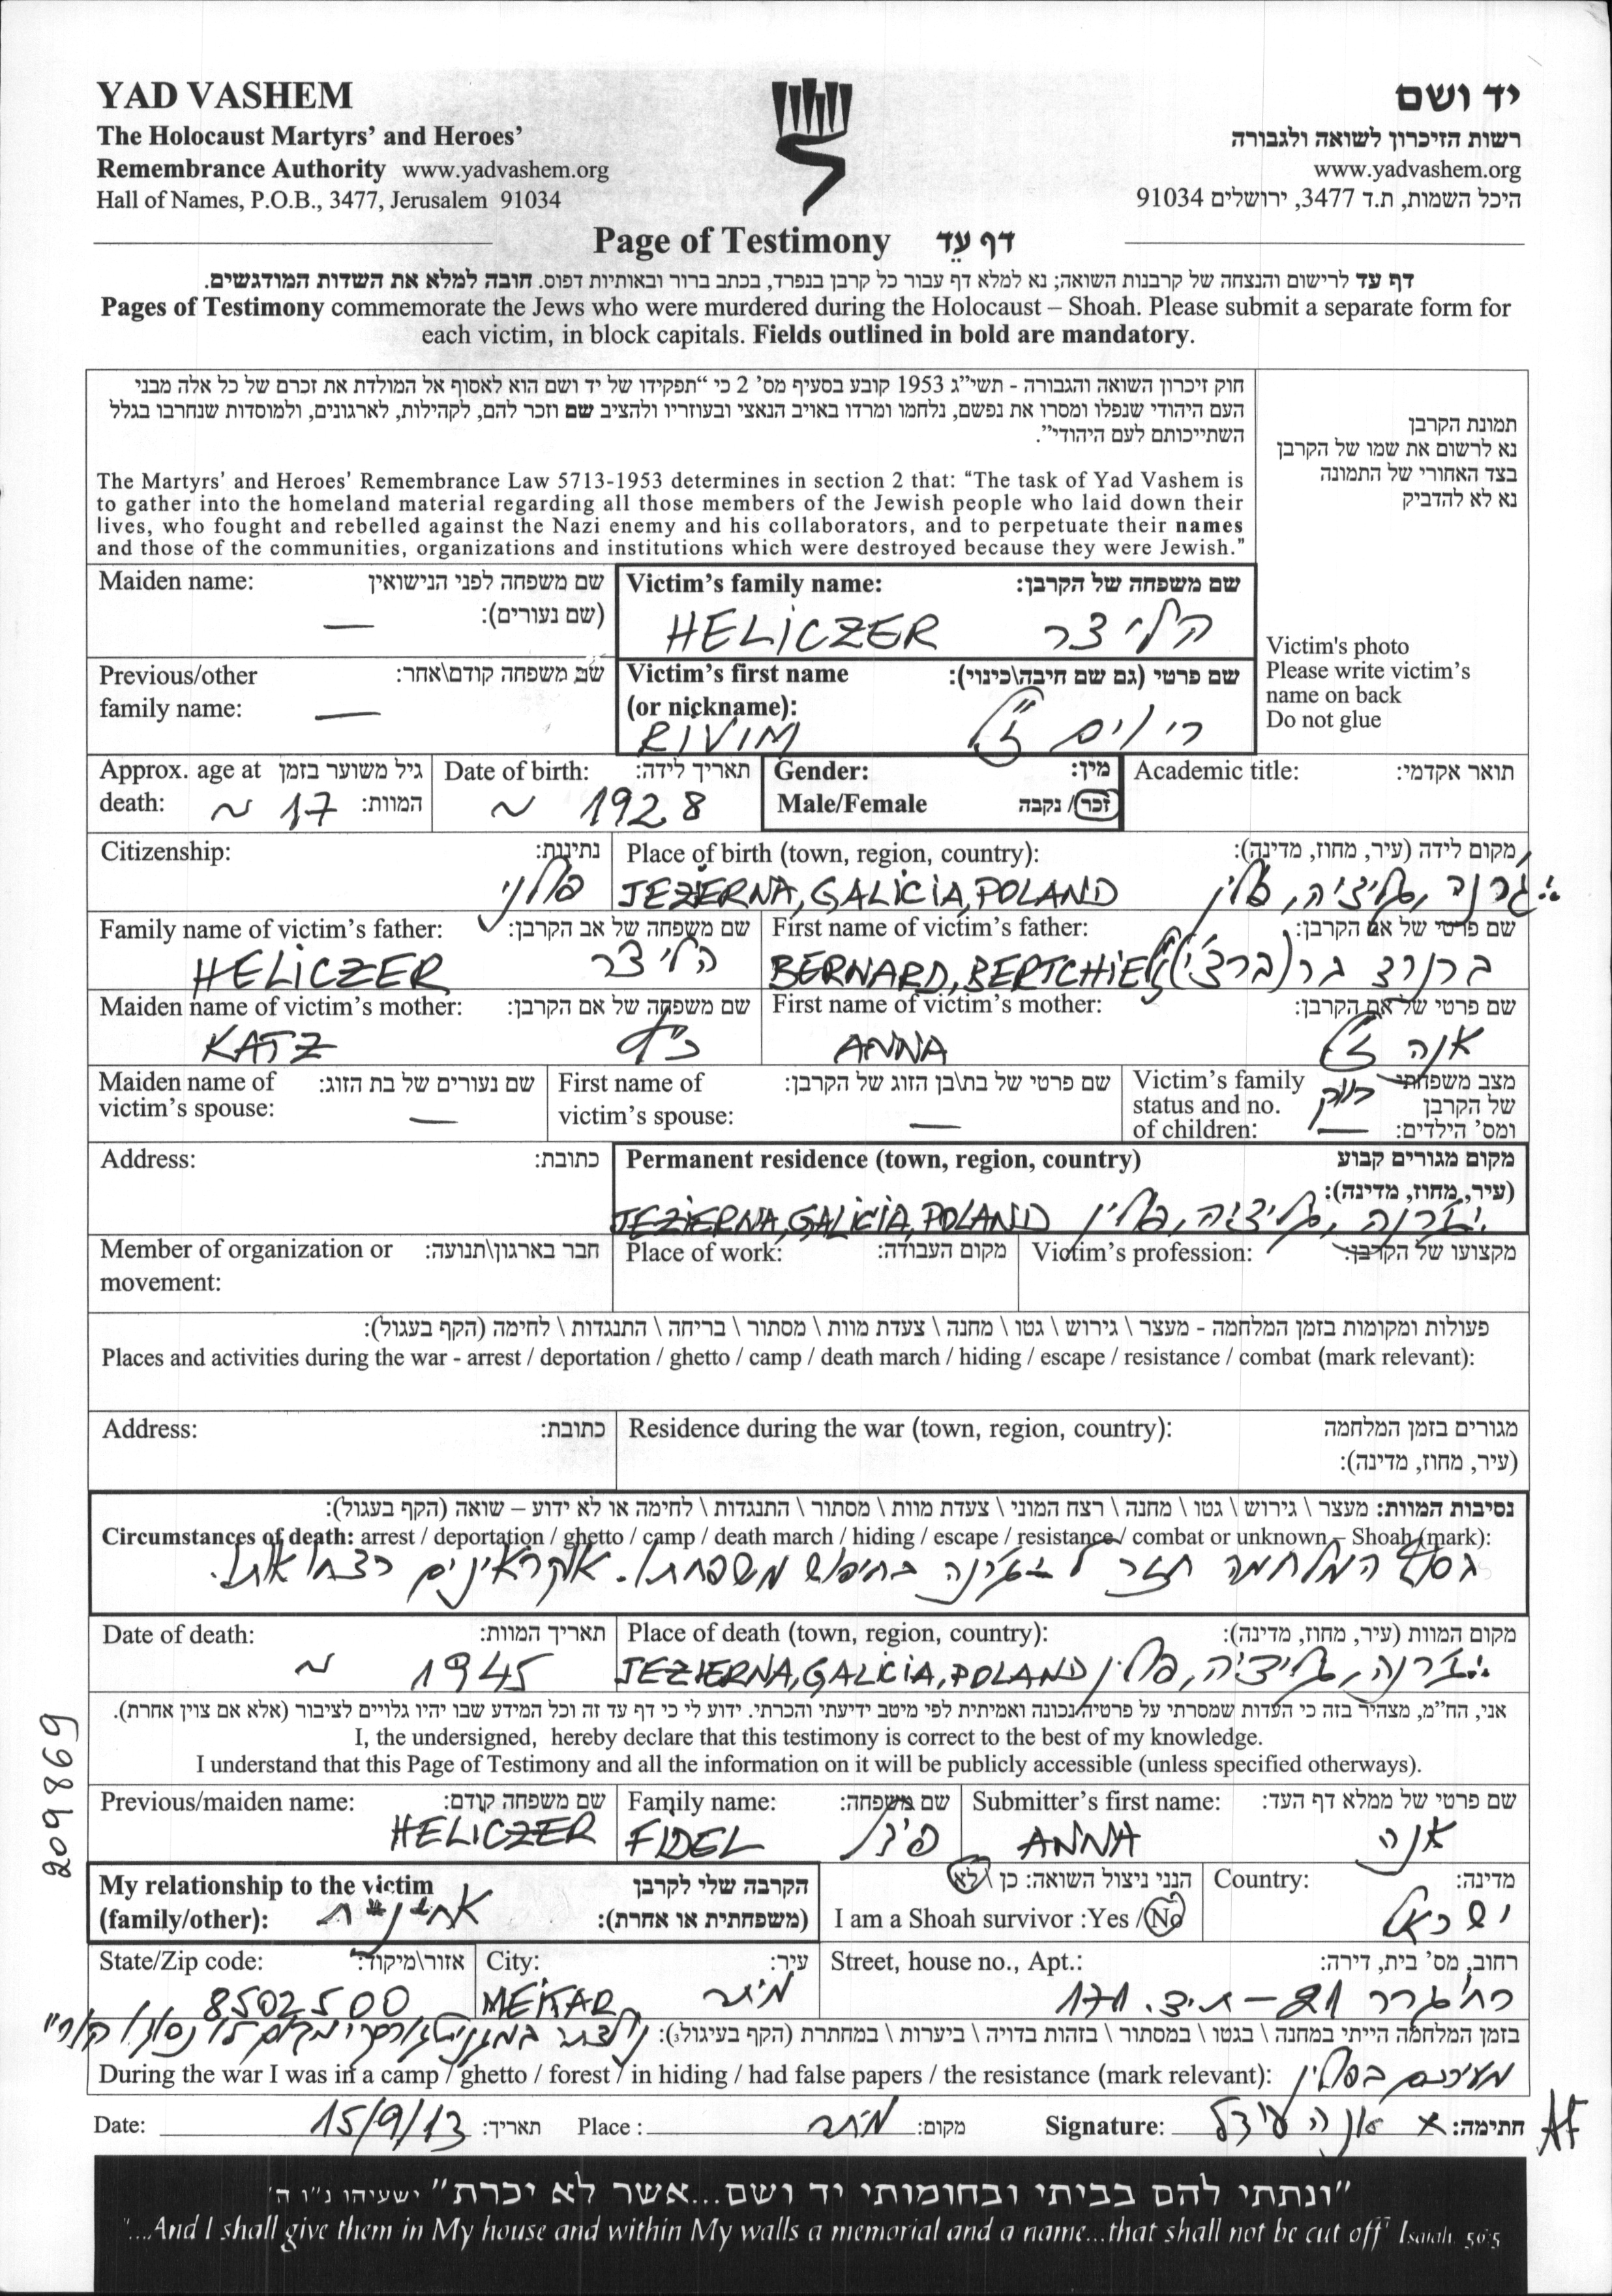 YAD VASHEM
The Holocaust Martyrs' and Heroes'
Remembrance Authority www.yadvashem.org
Hall of Names, P.O.B., 3477, Jerusalem 91034
יד ושם
רשות הזיכרון לשואה ולגבורה
www.yadvashem.org
היכל השמות, ת.ד 3477, ירושלים 91034
Page of Testimony דף עֵד
דף עד לרישום והנצחה של קרבנות השואה; נא למלא דף עבור כל קרבן בנפרד, בכתב ברור ובאותיות דפוס. חובה למלא את השדות המודגשים.
Pages of Testimony commemorate the Jews who were murdered during the Holocaust – Shoah. Please submit a separate form for
each victim, in block capitals. Fields outlined in bold are mandatory.
חוק זיכרון השואה והגבורה - תשי"ג 1953 קובע בסעיף מס' 2 כי "תפקידו של יד ושם הוא לאסוף אל המולדת את זכרם של כל אלה מבני
העם היהודי שנפלו ומסרו את נפשם, נלחמו ומרדו באויב הנאצי ובעוזריו ולהציב שם וזכר להם, לקהילות, לארגונים, ולמוסדות שנחרבו בגלל
השתייכותם לעם היהודי".
The Martyrs' and Heroes' Remembrance Law 5713-1953 determines in section 2 that: "The task of Yad Vashem is
to gather into the homeland material regarding all those members of the Jewish people who laid down their
lives, who fought and rebelled against the Nazi enemy and his collaborators, and to perpetuate their names
and those of the communities, organizations and institutions which were destroyed because they were Jewish."
תמונת הקרבן
נא לרשום את שמו של הקרבן
בצד האחורי של התמונה
נא לא להדביק
Victim's photo
Please write victim's
name on back
Do not glue
Maiden name: שם משפחה לפני הנישואין
(שם נעורים):
—
Victim's family name: שם משפחה של הקרבן:
HELICZER הליצר
Previous/other שם משפחה קודם\אחר:
family name: —
Victim's first name שם פרטי (גם שם חיבה\כינוי):
(or nickname):
RIVIM ריוים ז"ל
Approx. age at גיל משוער בזמן
death: ~ 17 המוות:
Date of birth: תאריך לידה:
~ 1928
Gender: מין:
Male/Female זכר / נקבה
Academic title: תואר אקדמי:
Citizenship: נתינות:
פולני
Place of birth (town, region, country): מקום לידה (עיר, מחוז, מדינה):
JEZIERNA, GALICIA, POLAND יז'רנה, גליציה, פולין
Family name of victim's father: שם משפחה של אב הקרבן:
HELICZER הליצר
First name of victim's father: שם פרטי של אב הקרבן:
BERNARD, BERTCHIE
Maiden name of victim's mother: שם משפחה של אם הקרבן:
KATZ כ"ץ
First name of victim's mother: שם פרטי של אם הקרבן:
ANNA אנה ז"ל
Maiden name of שם נעורים של בת הזוג:
victim's spouse: —
First name of שם פרטי של בת\בן הזוג של הקרבן:
victim's spouse: —
Victim's family מצב משפחתי
status and no. רווק של הקרבן
of children: — ומס' הילדים:
Address: כתובת:
Permanent residence (town, region, country) מקום מגורים קבוע
(עיר, מחוז, מדינה):
JEZIERNA, GALICIA, POLAND יז'רנה, גליציה, פולין
Member of organization or חבר בארגון\תנועה:
movement:
Place of work: מקום העבודה:
Victim's profession: מקצועו של הקרבן:
פעולות ומקומות בזמן המלחמה - מעצר \ גירוש \ גטו \ מחנה \ צעדת מוות \ מסתור \ בריחה \ התנגדות \ לחימה (הקף בעגול):
Places and activities during the war - arrest / deportation / ghetto / camp / death march / hiding / escape / resistance / combat (mark relevant):
Address: כתובת:
Residence during the war (town, region, country): מגורים בזמן המלחמה
(עיר, מחוז, מדינה):
נסיבות המוות: מעצר \ גירוש \ גטו \ מחנה \ רצח המוני \ צעדת מוות \ מסתור \ התנגדות \ לחימה או לא ידוע – שואה (הקף בעגול):
Circumstances of death: arrest / deportation / ghetto / camp / death march / hiding / escape / resistance / combat or unknown – Shoah (mark):
בסוף המלחמה חזר ל בחיפוש משפחתו. אוקראינים רצחו אותו.
Date of death: תאריך המוות:
~ 1945
Place of death (town, region, country): מקום המוות (עיר, מחוז, מדינה):
JEZIERNA, GALICIA, POLAND יז'רנה, גליציה, פולין
אני, הח"מ, מצהיר בזה כי העדות שמסרתי על פרטיה נכונה ואמיתית לפי מיטב ידיעתי והכרתי. ידוע לי כי דף עד זה וכל המידע שבו יהיו גלויים לציבור (אלא אם צוין אחרת).
I, the undersigned, hereby declare that this testimony is correct to the best of my knowledge.
I understand that this Page of Testimony and all the information on it will be publicly accessible (unless specified otherways).
209869
Previous/maiden name: שם משפחה קודם:
HELICZER
Family name: שם משפחה:
FIDEL פידל
Submitter's first name: שם פרטי של ממלא דף העד:
ANNA אנה
My relationship to the victim הקרבה שלי לקרבן
(family/other): אחיינית (משפחתית או אחרת):
הנני ניצול השואה: כן \ לא
I am a Shoah survivor : Yes / No
Country: מדינה:
ישראל
State/Zip code: אזור\מיקוד:
8502500
City: עיר:
MEITAR מיתר
Street, house no., Apt.: רחוב, מס' בית, דירה:
21 – ת.ד. 171
בזמן המלחמה הייתי במחנה \ בגטו \ במסתור \ בזהות בדויה \ ביערות \ במחתרת (הקף בעיגול):
During the war I was in a camp / ghetto / forest / in hiding / had false papers / the resistance (mark relevant):
Date: 15/9/13 תאריך: Place : מיתר מקום: Signature: אנה פידל x חתימה: AF
"ונתתי להם בביתי ובחומותי יד ושם...אשר לא יכרת" ישעיהו נ"ו ה'
"...And I shall give them in My house and within My walls a memorial and a name...that shall not be cut off" Isaiah 56:5